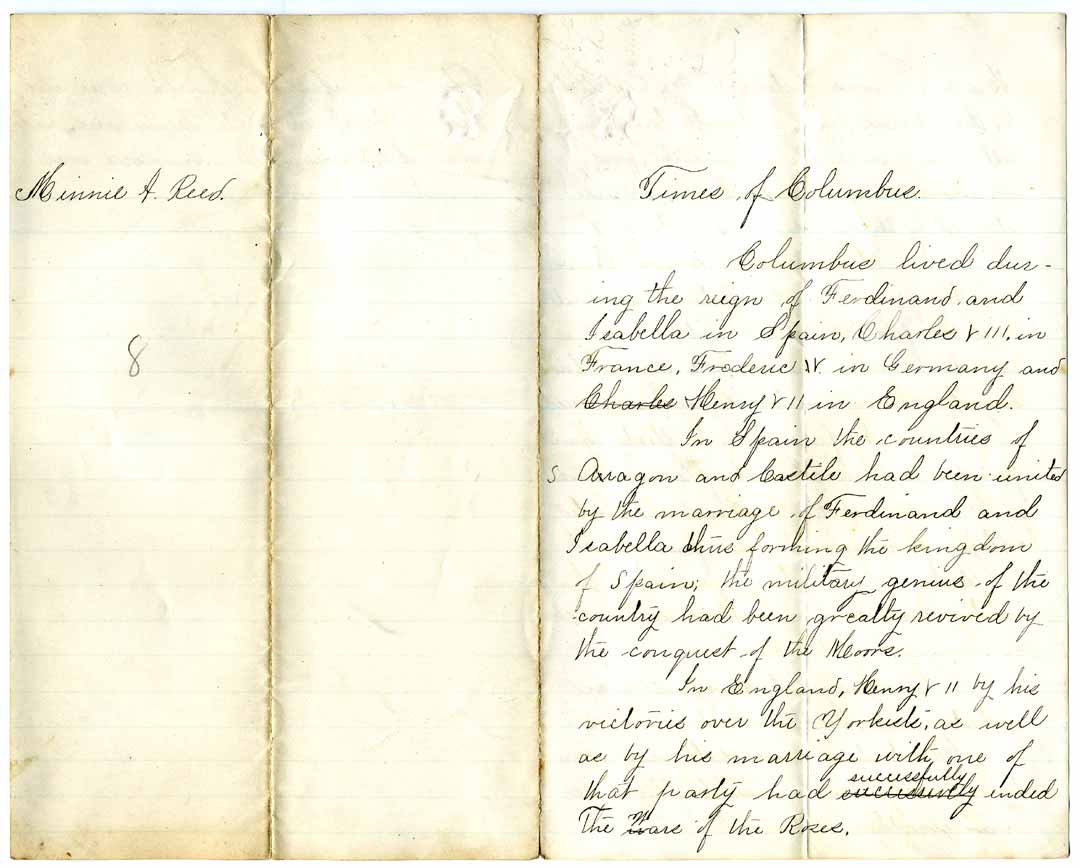 Minnie A. Reed.
8
Times of Columbus.
Columbus lived dur-
ing the reign of Ferdinand and
Isabella in Spain, Charles VIII. in
France, Frederic IV. in Germany and
Charles Henry VII in England.
In Spain the countries of
S Arragon and Castile had been united
by the marriage of Ferdinand and
Isabella thus forming the kingdom
of Spain; the military genius of the
country had been greatly revived by
the conquest of the Moors.
In England, Henry VII by his
victories over the Yorkists, as well
as by his marriage with one of
successfully
that party had successively ended
The Wars of the Roses.